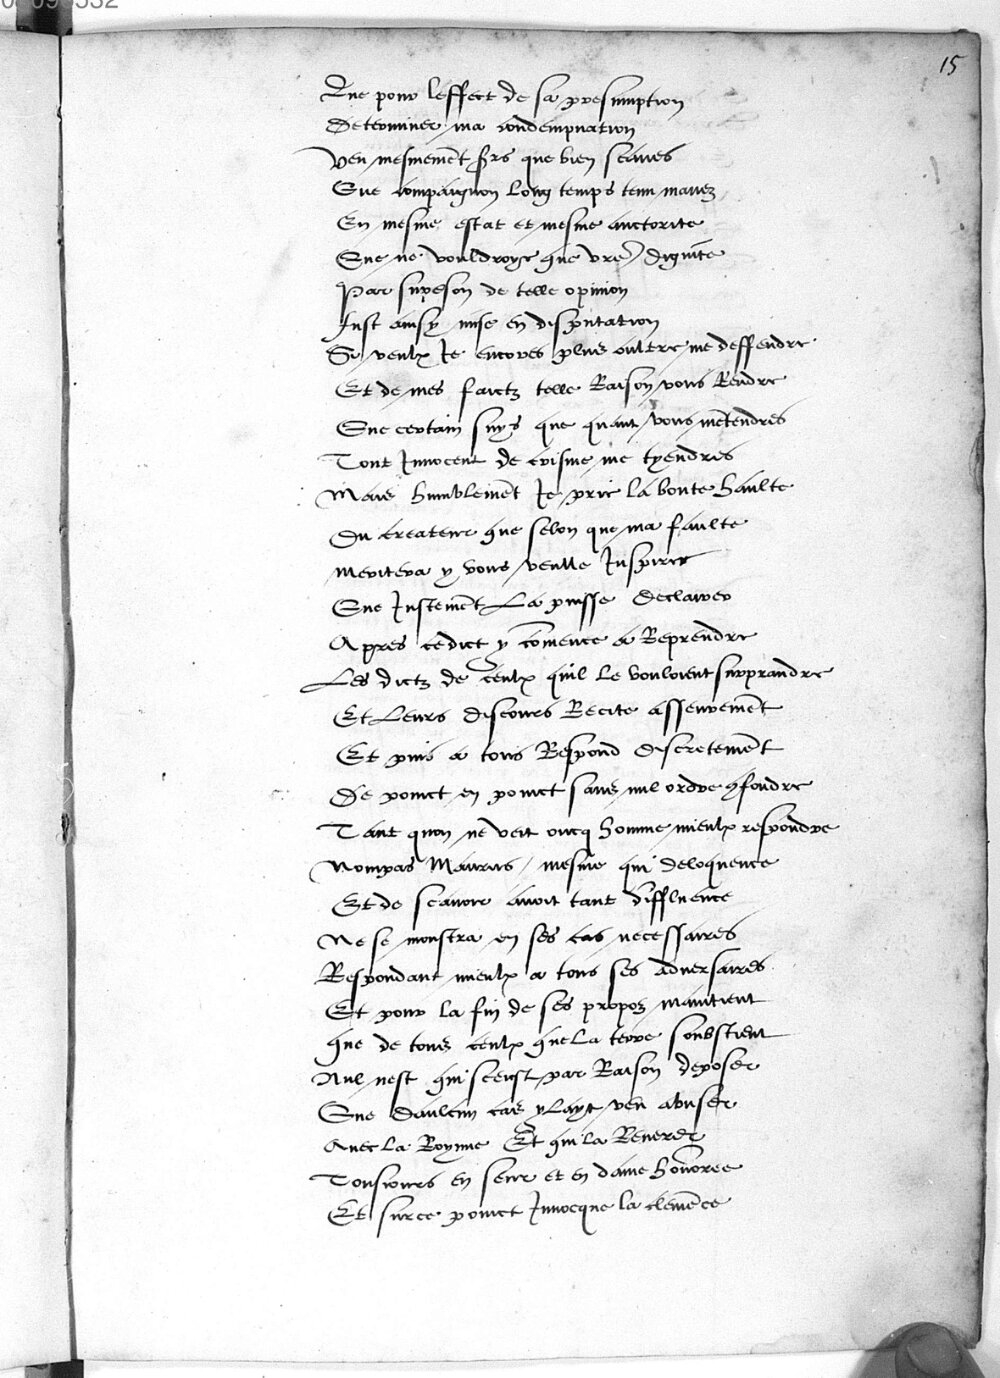 15
Que pour leffect de sa presumption
Determiner ma condempnation
Veu mesmement srs que bien scaues
Que compaignon long temps tenu mauez
En mesme estat et mesme auctorite
Que ne vouldroye que vre dignite
Par supeson de telle opinion
Fust ainsy mise en disputation
Si veulx Je encores plus oultre me deffendre
Et de mes faictz telle Raison vous Rendre
Que certain suys que quant vous mètendres
Tout Innocent de crisme me tyendres
Mais humblemēt Je prie la bonte haulte
Du createur que selon que ma faulte
Meritera y vous veulle Inspirer
Que Justemēt La puisse declairer
Apres cedict y cōmence a Reprendre
Les dictz de ceulx quil le vouloient surprandre
Et Leurs discours Recite asseuremēt
Et puis a tous Respond discretemēt
De poinct en poinct sans nul ordre 9fondre
Tant quon ne veit oncq homme mieulx respondre
Nompas Marcus mesme qui deloquence
Et de scauoir auoit tant diffluence
Ne se monstra en ses cas necessaires
Respondant mieulx a tous ses aduersaires
Et pour la fin de ses propoz maintient
que de tous ceulx que La terre soubstient
Nul nest qui sceust par Raison deposer
Que daulcun cas y Layt veu abuser
Auec La Royne Et qui la Reueree
Tousiours en seur et en dame hōnoree
Et surce poinct Inuocque la clemēce